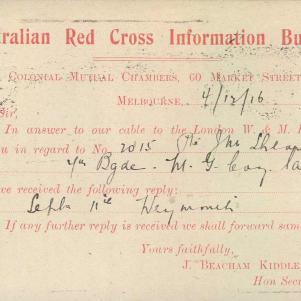 tralian Red Cross Information Bu
Colonial Mutual Chambers, 60 Market Street
Melbourne, 4/12/16
Sir,
In answer to our cable to the London W. & M. B
u in regard to No. 2015 Pte Jno
4th Bgde. M. G. Coy.
ve received the following reply:
Septbr 11th Weymouth
If any further reply is received we shall forward same
Yours faithfully,
J. Beacham Kiddle
Hon Sec